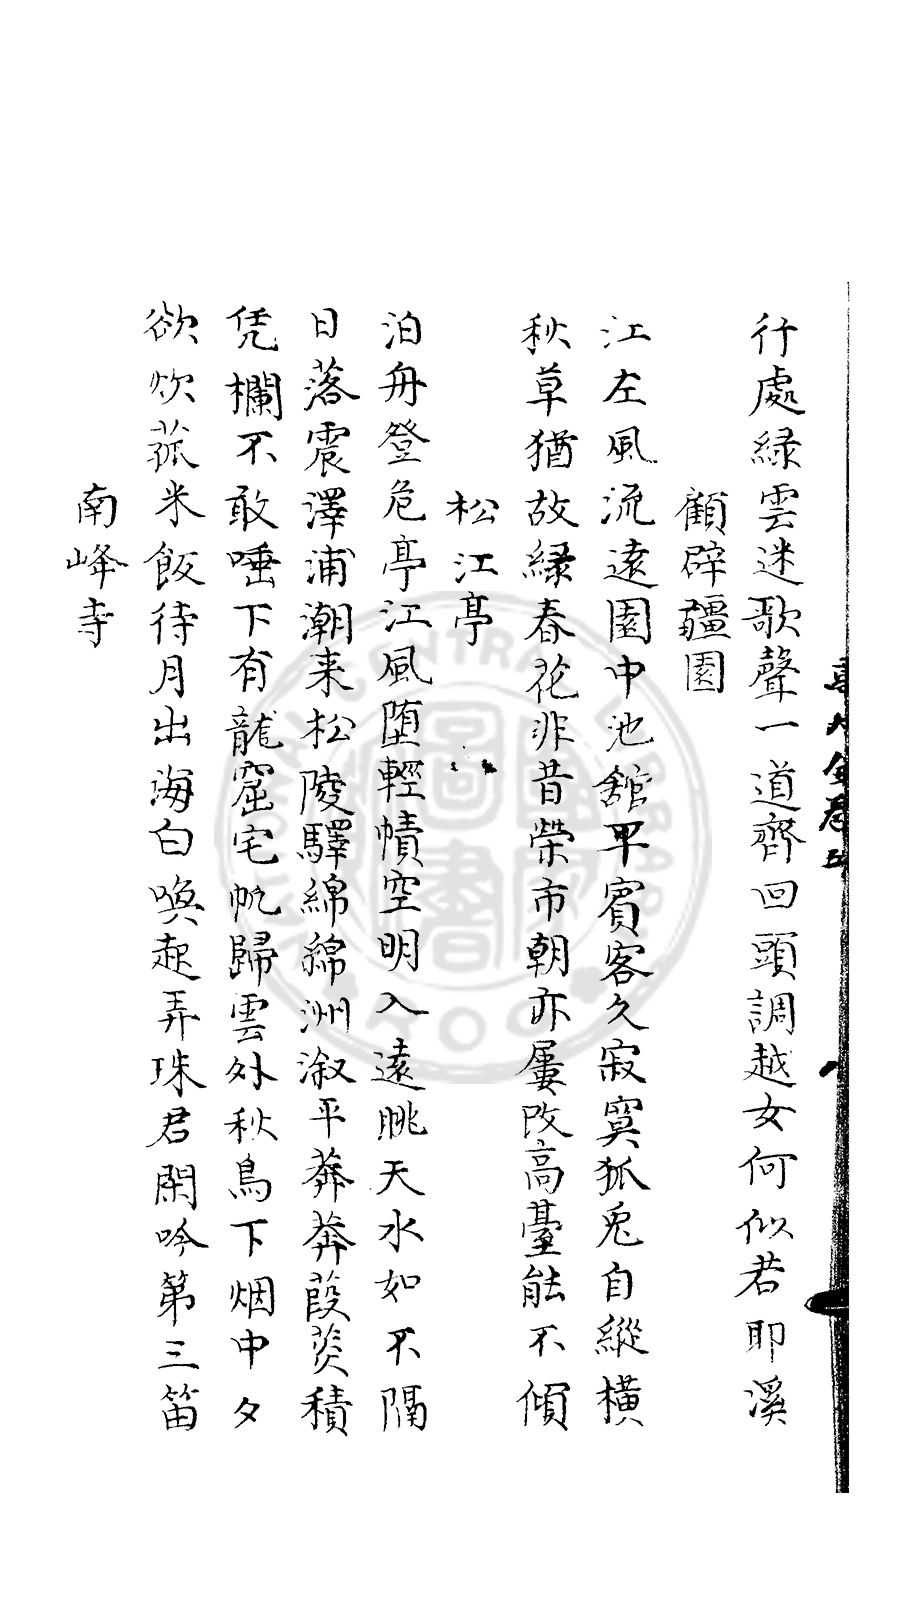 行處緑雲迷歌聲一道齊回頭調越女何似若耶溪
顧辟疆園
江左風流遠園中池舘平賓客久寂寞狐兎自縱橫
秋草猶故緑春花非昔榮市朝亦屢改高臺能不傾
松江亭
泊舟登危亭江風墮輕幘空明入遠眺天水如不隔
日落震澤浦潮来松陵驛綿綿洲溆平莽莽葭菼積
凭欄不敢唾下有龍窟宅帆歸雲外秋鳥下烟中夕
欲炊菰米飯待月出海白喚起弄珠君閑吟第三笛
南峰寺